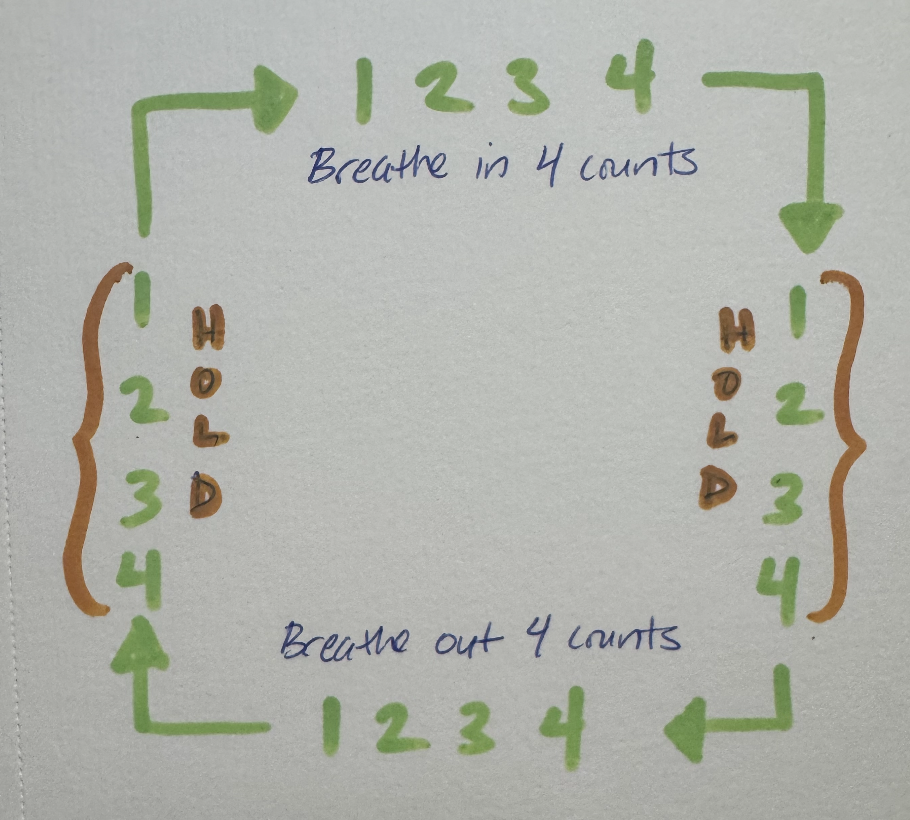 1 2 3 4
Breathe in 4 counts
1
2
3
4
HOLD
HOLD
1
2
3
4
Breathe out 4 counts
1 2 3 4